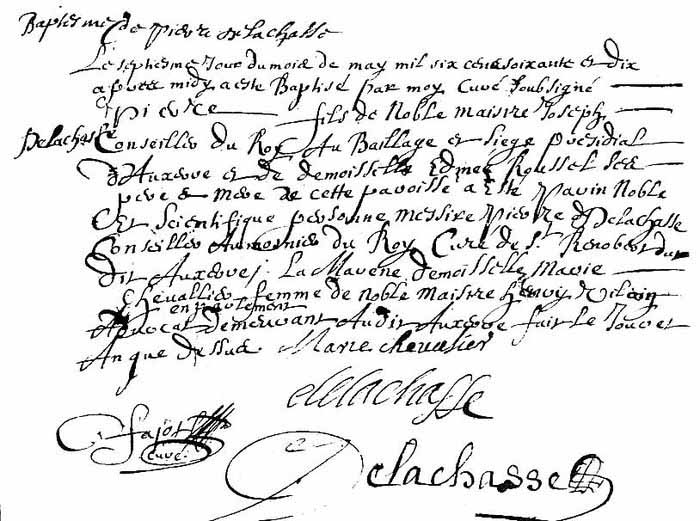 Baptesme de Pierre delachasse
Le septiesme Jour du mois de may mil six cens soixante et dix
apres midy a este Baptisé par moy Curé soubsigné
Pierre fils de Noble maistre Joseph
Delachasse Conseiller du Roy Au Baillage et siege presidial
d'Auxerre et de demoisselle Edmee Roussel ses
pere & mere de cette paroisse a este Parin Noble
Et scientifique personne messire Pierre Delachasse
Conseiller Aumosnier du Roy Curé de St Renobert dud
dit Auxerre; La Marene demoisselle Marie
Chevallier femme de noble maistre Henry Vilain
en parlement
Advocat demeurant Audit Auxerre fait Le Jour et
An que dessus. Marie Chevalier
delachasse
Fajot
curé
Delachasse